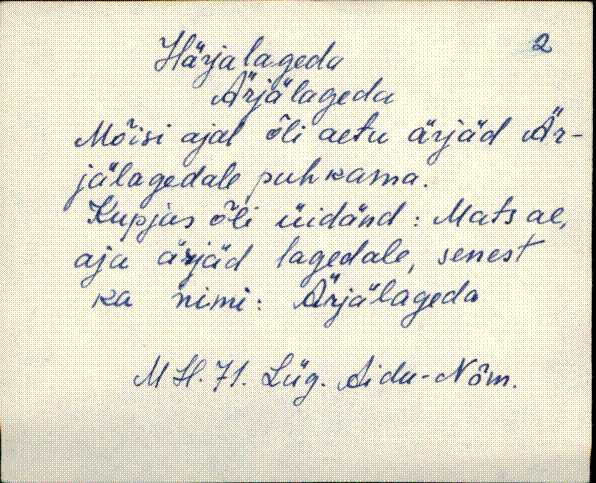 2
Härjalageda
Ärjälageda
Mõisi ajal õli aetu ärjäd Är-
jälagedale puhkama.
Kupjas õli üidänd: Mats ae,
aja ärjäd lagedale, senest
ka nimi: Ärjälageda
M H. 71. Lüg. Aidu-Nõm.